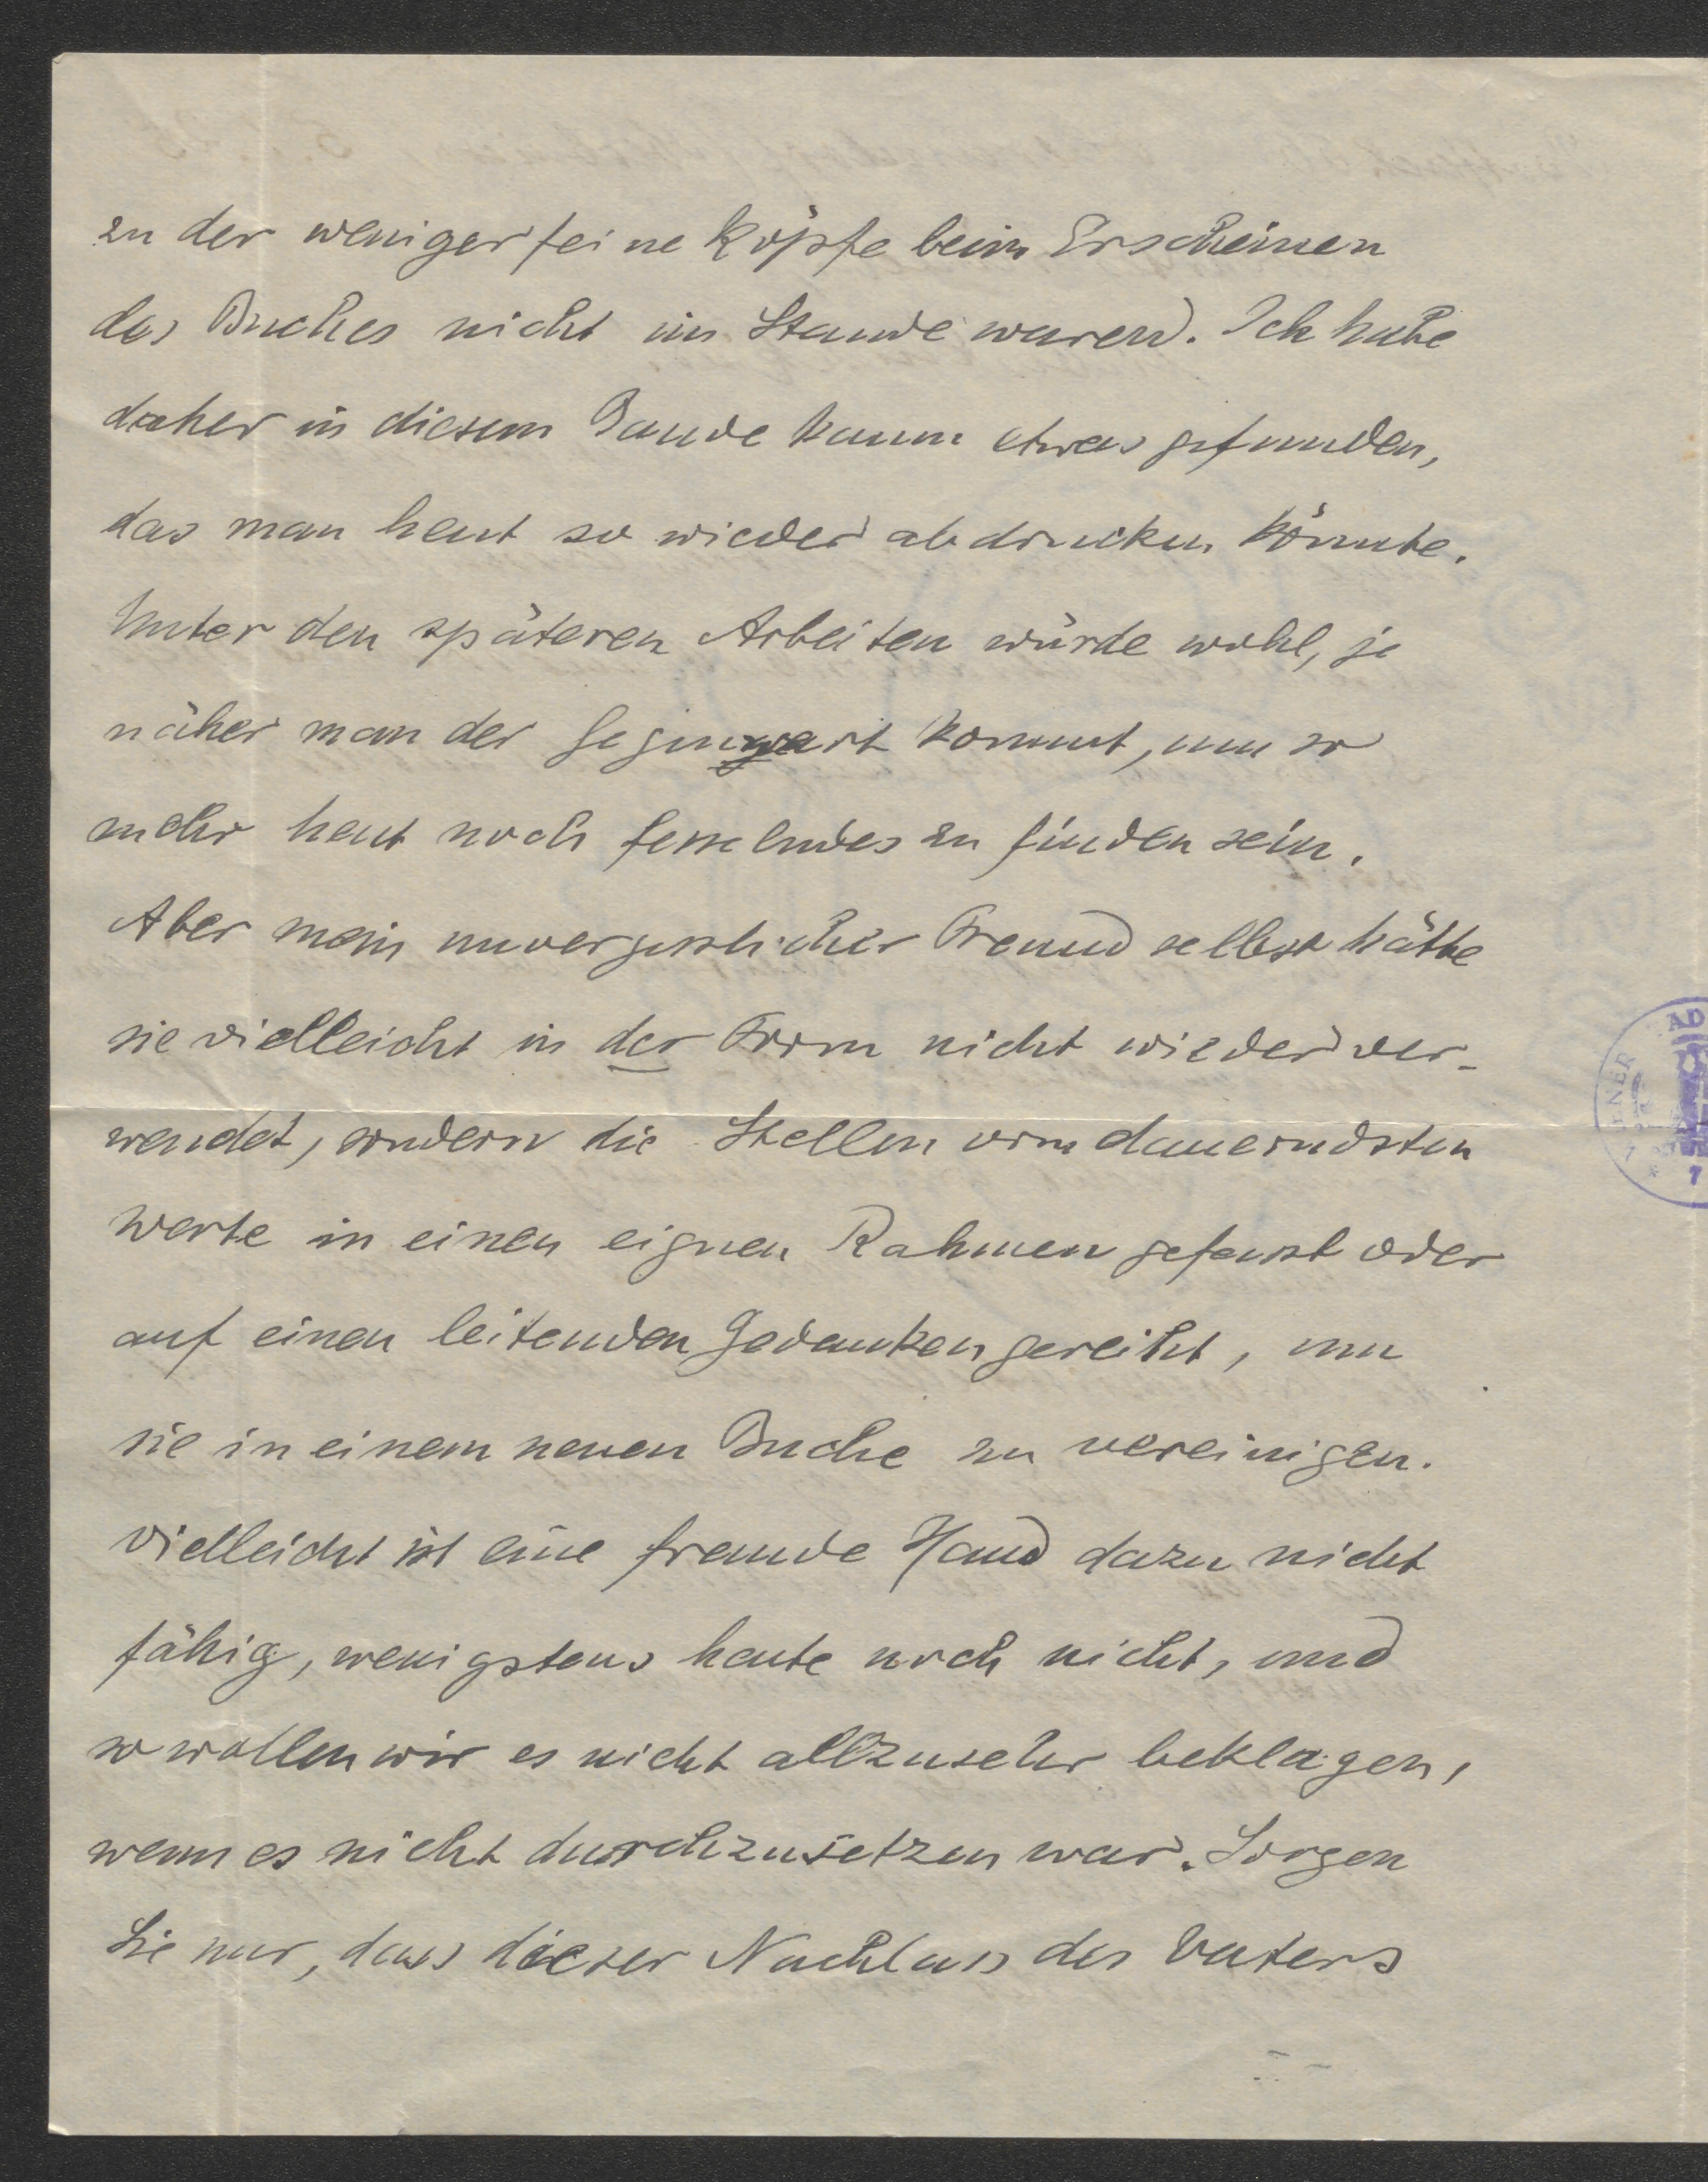 zu der weniger feine Köpfe beim Erscheinen
des Buches nicht im Stande waren. Ich habe
daher in diesem Bande kaum etwas gefunden,
das man heut so wieder abdrucken könnte.
Unter den späteren Arbeiten würde wohl, je
näher man der Gegenwart kommt, um so
mehr heut noch fesselndes zu finden sein.
Aber mein unvergesslicher Freund selbst hätte
sie vielleicht in der Form nicht wieder ver-
wendet, sondern die Stellen vom dauerndsten
Werte in einen eignen Rahmen gefasst oder
auf einen leitenden Gedanken gereiht, um
sie in einem neuen Buche zu vereinigen.
Vielleicht ist eine fremde Hand dazu nicht
fähig, wenigstens heute noch nicht, und
so wollen wir es nicht allzusehr beklagen,
wenn es nicht durchzusetzen war. Sorgen
Sie nur, dass dieser Nachlass des Vaters